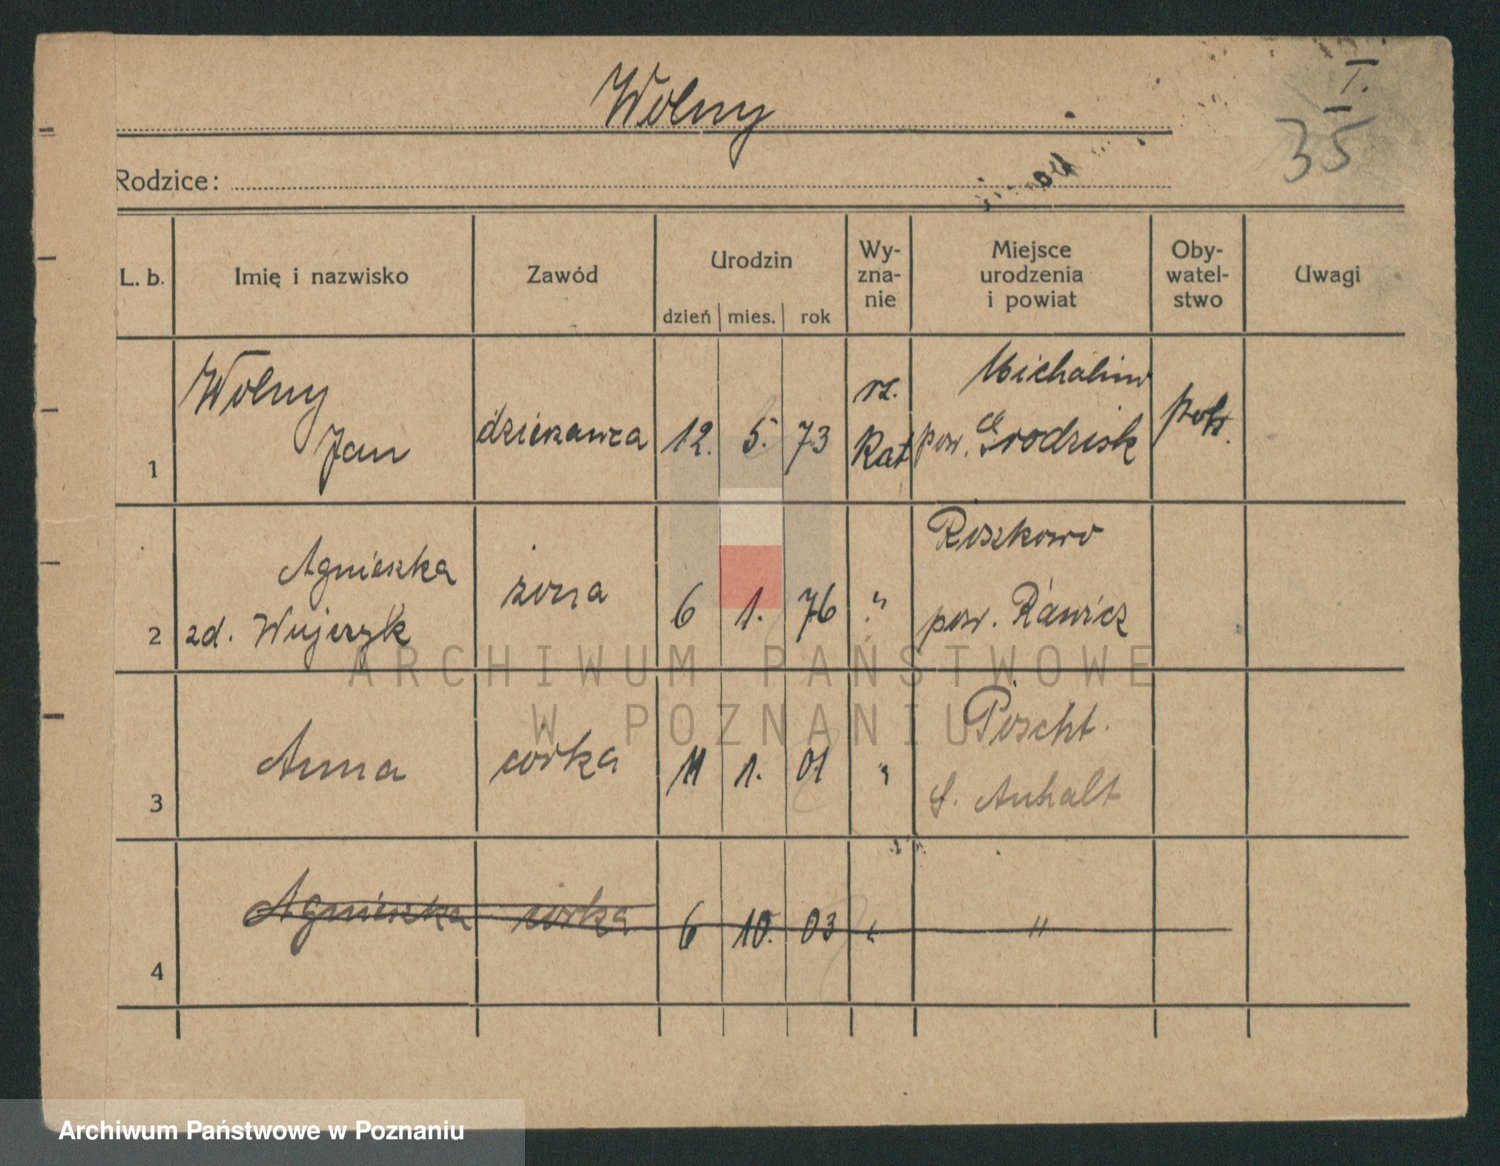 Wolny
I.
35
Rodzice:
L. b.
Imię i nazwisko
Zawód
Urodzin
dzień mies. rok
Wy-
zna-
nie
Miejsce
urodzenia
i powiat
Oby-
watel-
stwo
Uwagi
1 Wolny
Jan
dzierżawca 12. 5. 73
rz.
kat
Michalin
pow. Grodzisk
pols.
2 Agnieszka
zd. Wujczyk
żona 6 1. 76 "
Roszkowo
pow. Rawicz
3 Anna córka 11 1. 01 "
f. Anhalt
4 Agnieszka córka 6 10. 03 " "
ARCHIWUM PAŃSTWOWE
W POZNANIU
Archiwum Państwowe w Poznaniu